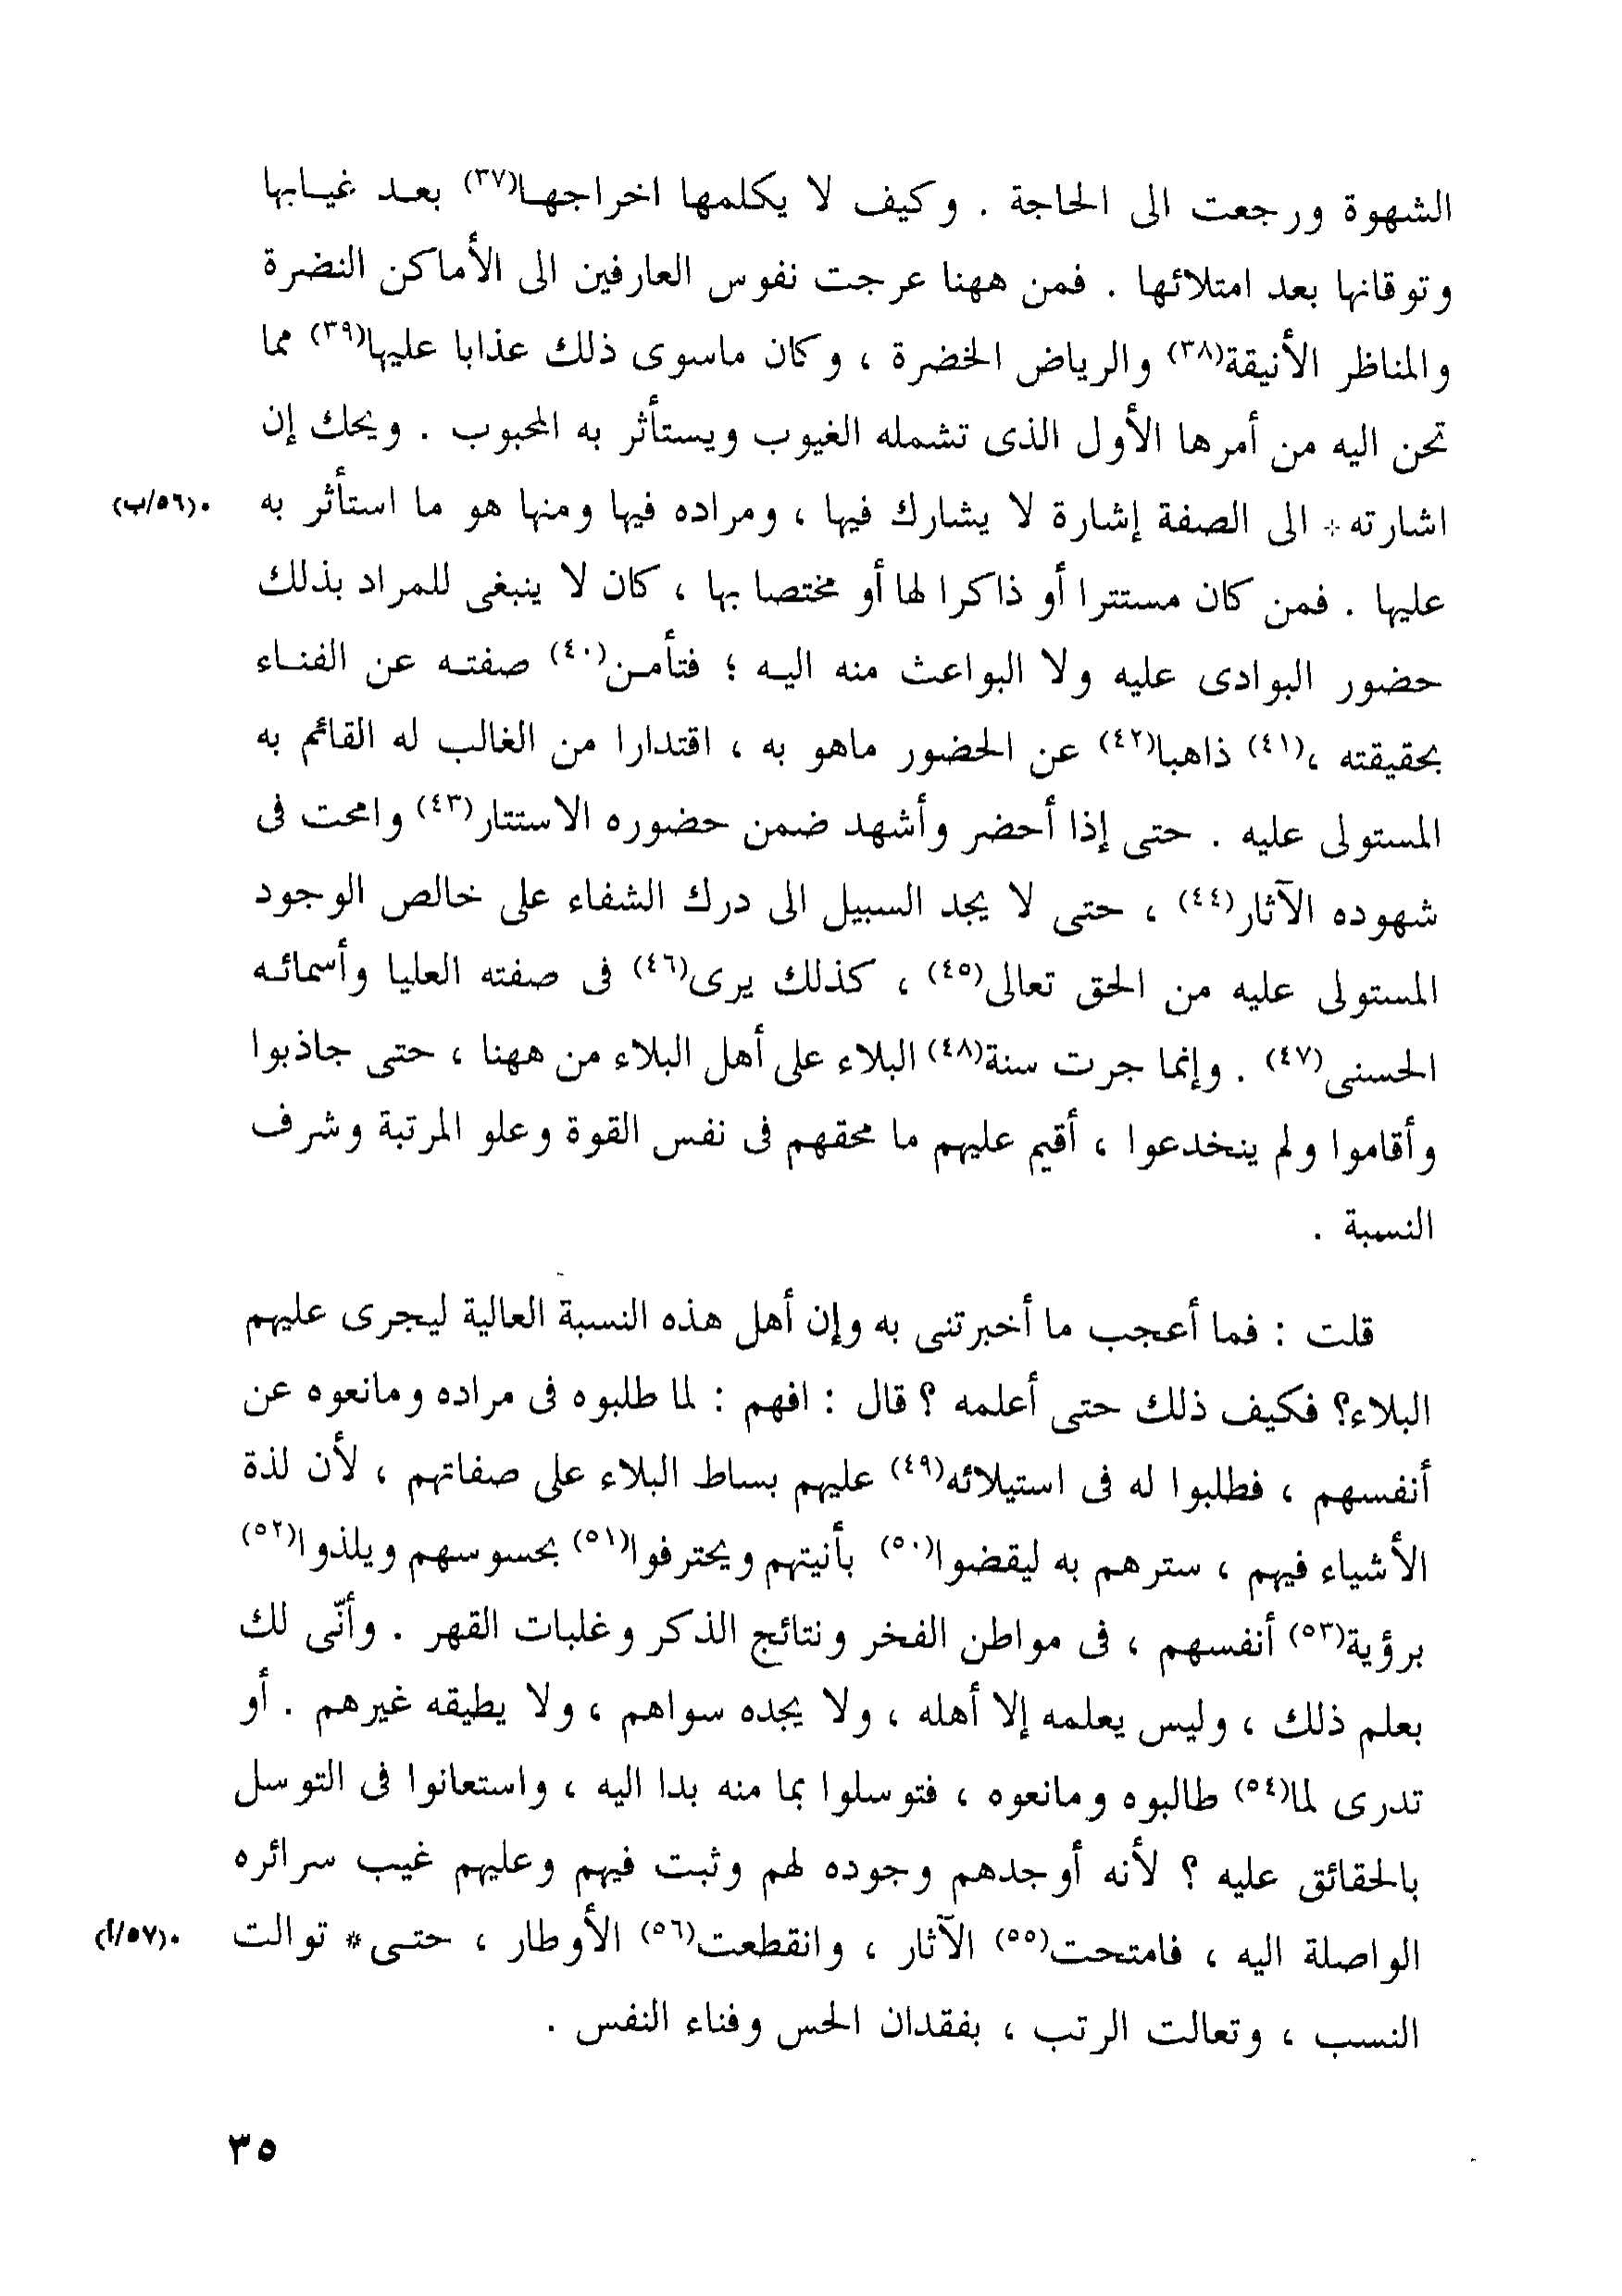 الشهوة ورجعت الى الحاجة . وكيف لا يكلمها اخراجها(٣٧) بعد غيابها
وتوقانها بعد امتلائها . فمن ههنا عرجت نفوس العارفين الى الأماكن النضرة
والمناظر الأنيقة(٣٨) والرياض الخضرة ، وكان ماسوى ذلك عذابا عليها(٣٩) مما
تحن اليه من أمرها الأول الذى تشمله الغيوب ويستأثر به المحبوب . ويحك إن
اشارته* الى الصفة إشارة لا يشارك فيها ، ومراده فيها ومنها هو ما استأثر به
•(٥٦/ب)
عليها . فمن كان مستترا أو ذاكرا لها أو مختصا بها ، كان لا ينبغى للمراد بذلك
حضور البوادى عليه ولا البواعث منه اليه ؛ فتأمن(٤٠) صفته عن الفناء
بحقيقته ،(٤١) ذاهبا(٤٢) عن الحضور ماهو به ، اقتدارا من الغالب له القائم به
المستولى عليه . حتى إذا أحضر وأشهد ضمن حضوره الاستتار(٤٣) وامحت فى
شهوده الآثار(٤٤) ، حتى لا يجد السبيل الى درك الشفاء على خالص الوجود
المستولى عليه من الحق تعالى(٤٥) ، كذلك يرى(٤٦) فى صفته العليا وأسمائه
الحسنى(٤٧) . وإنما جرت سنة(٤٨) البلاء على أهل البلاء من ههنا ، حتى جاذبوا
وأقاموا ولم ينخدعوا ، أقيم عليهم ما محقهم فى نفس القوة وعلو المرتبة وشرف
النسبة .
قلت : فما أعجب ما أخبرتنى به وإن أهل هذه النسبة العالية ليجرى عليهم
البلاء؟ فكيف ذلك حتى أعلمه ؟ قال : افهم : لما طلبوه فى مراده ومانعوه عن
أنفسهم ، فطلبوا له فى استيلائه(٤٩) عليهم بساط البلاء على صفاتهم ، لأن لذة
الأشياء فيهم ، سترهم به ليقضوا(٥٠) بأنيتهم ويحترفوا(٥١) بحسوسهم ويلذوا(٥٢)
برؤية(٥٣) أنفسهم ، فى مواطن الفخر ونتائج الذكر وغلبات القهر . وأنّى لك
بعلم ذلك ، وليس يعلمه إلا أهله ، ولا يجده سواهم ، ولا يطيقه غيرهم . أو
تدرى لما(٥٤) طالبوه ومانعوه ، فتوسلوا بما منه بدا اليه ، واستعانوا فى التوسل
بالحقائق عليه ؟ لأنه أوجدهم وجوده لهم وثبت فيهم وعليهم غيب سرائره
الواصلة اليه ، فامتحت(٥٥) الآثار ، وانقطعت(٥٦) الأوطار ، حتى* توالت
•(٥٧/أ)
النسب ، وتعالت الرتب ، بفقدان الحس وفناء النفس .
٣٥